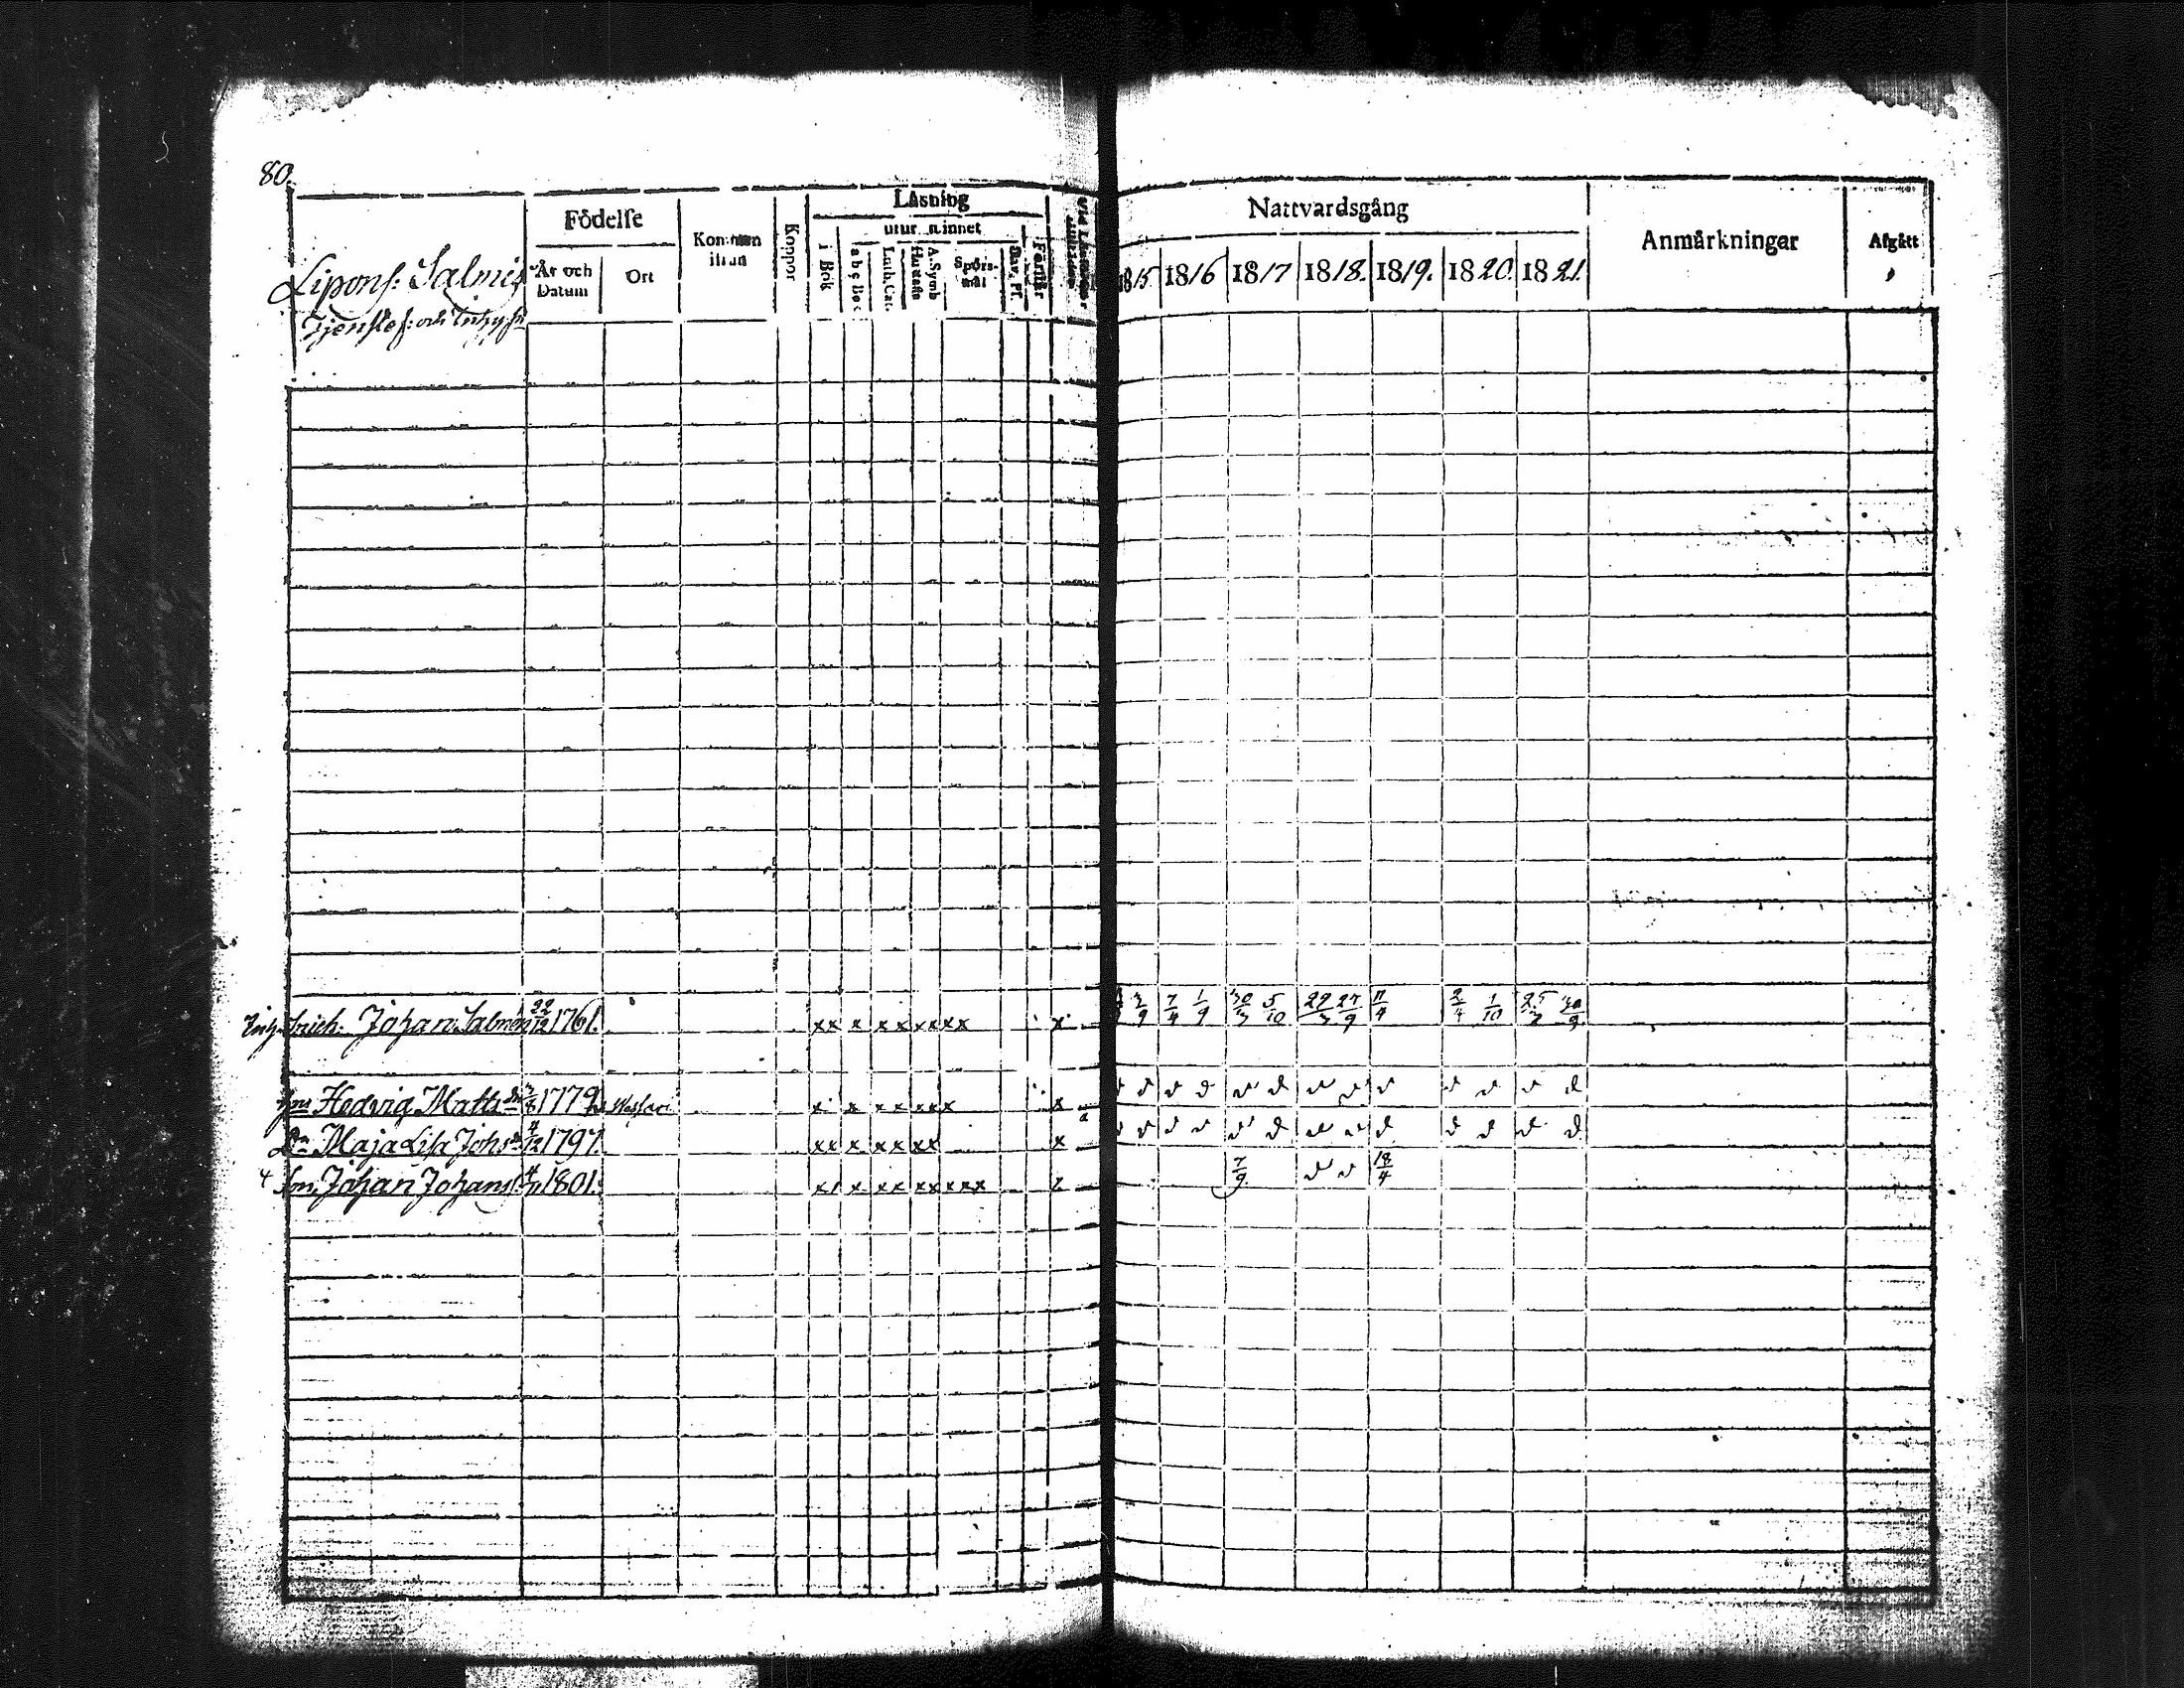 80.
Lipons: Salmis
Tjenstef: och Inhysf
Födelse
År och Datum
Ort
Kommen ifrån
Koppor
Läsning
utur minnet
i Bok
a b c Bok
Luth. Cat.
Hustafla
A. Symb
Spörsmål
Dav. Ps.
Förstår
Nattvardsgång
1815 1816 1817 1818. 1819. 1820. 1821.
Anmärkningar
Afgått
Johan Salmén 22/12 1761. xx x xx xxxx x 3/9 7/4 1/9 30/3 5/10 22/3 27/9 11/4 2/4 1/10 25/3 30/9
Hedvig Matts dr 1779. x x xx xxx x
Dr Maja Lisa Johs dr 4/12 1797. xx x xx xx x
4 Son Johan Johans 1801. xx x xx xxxxx 7/9 18/4